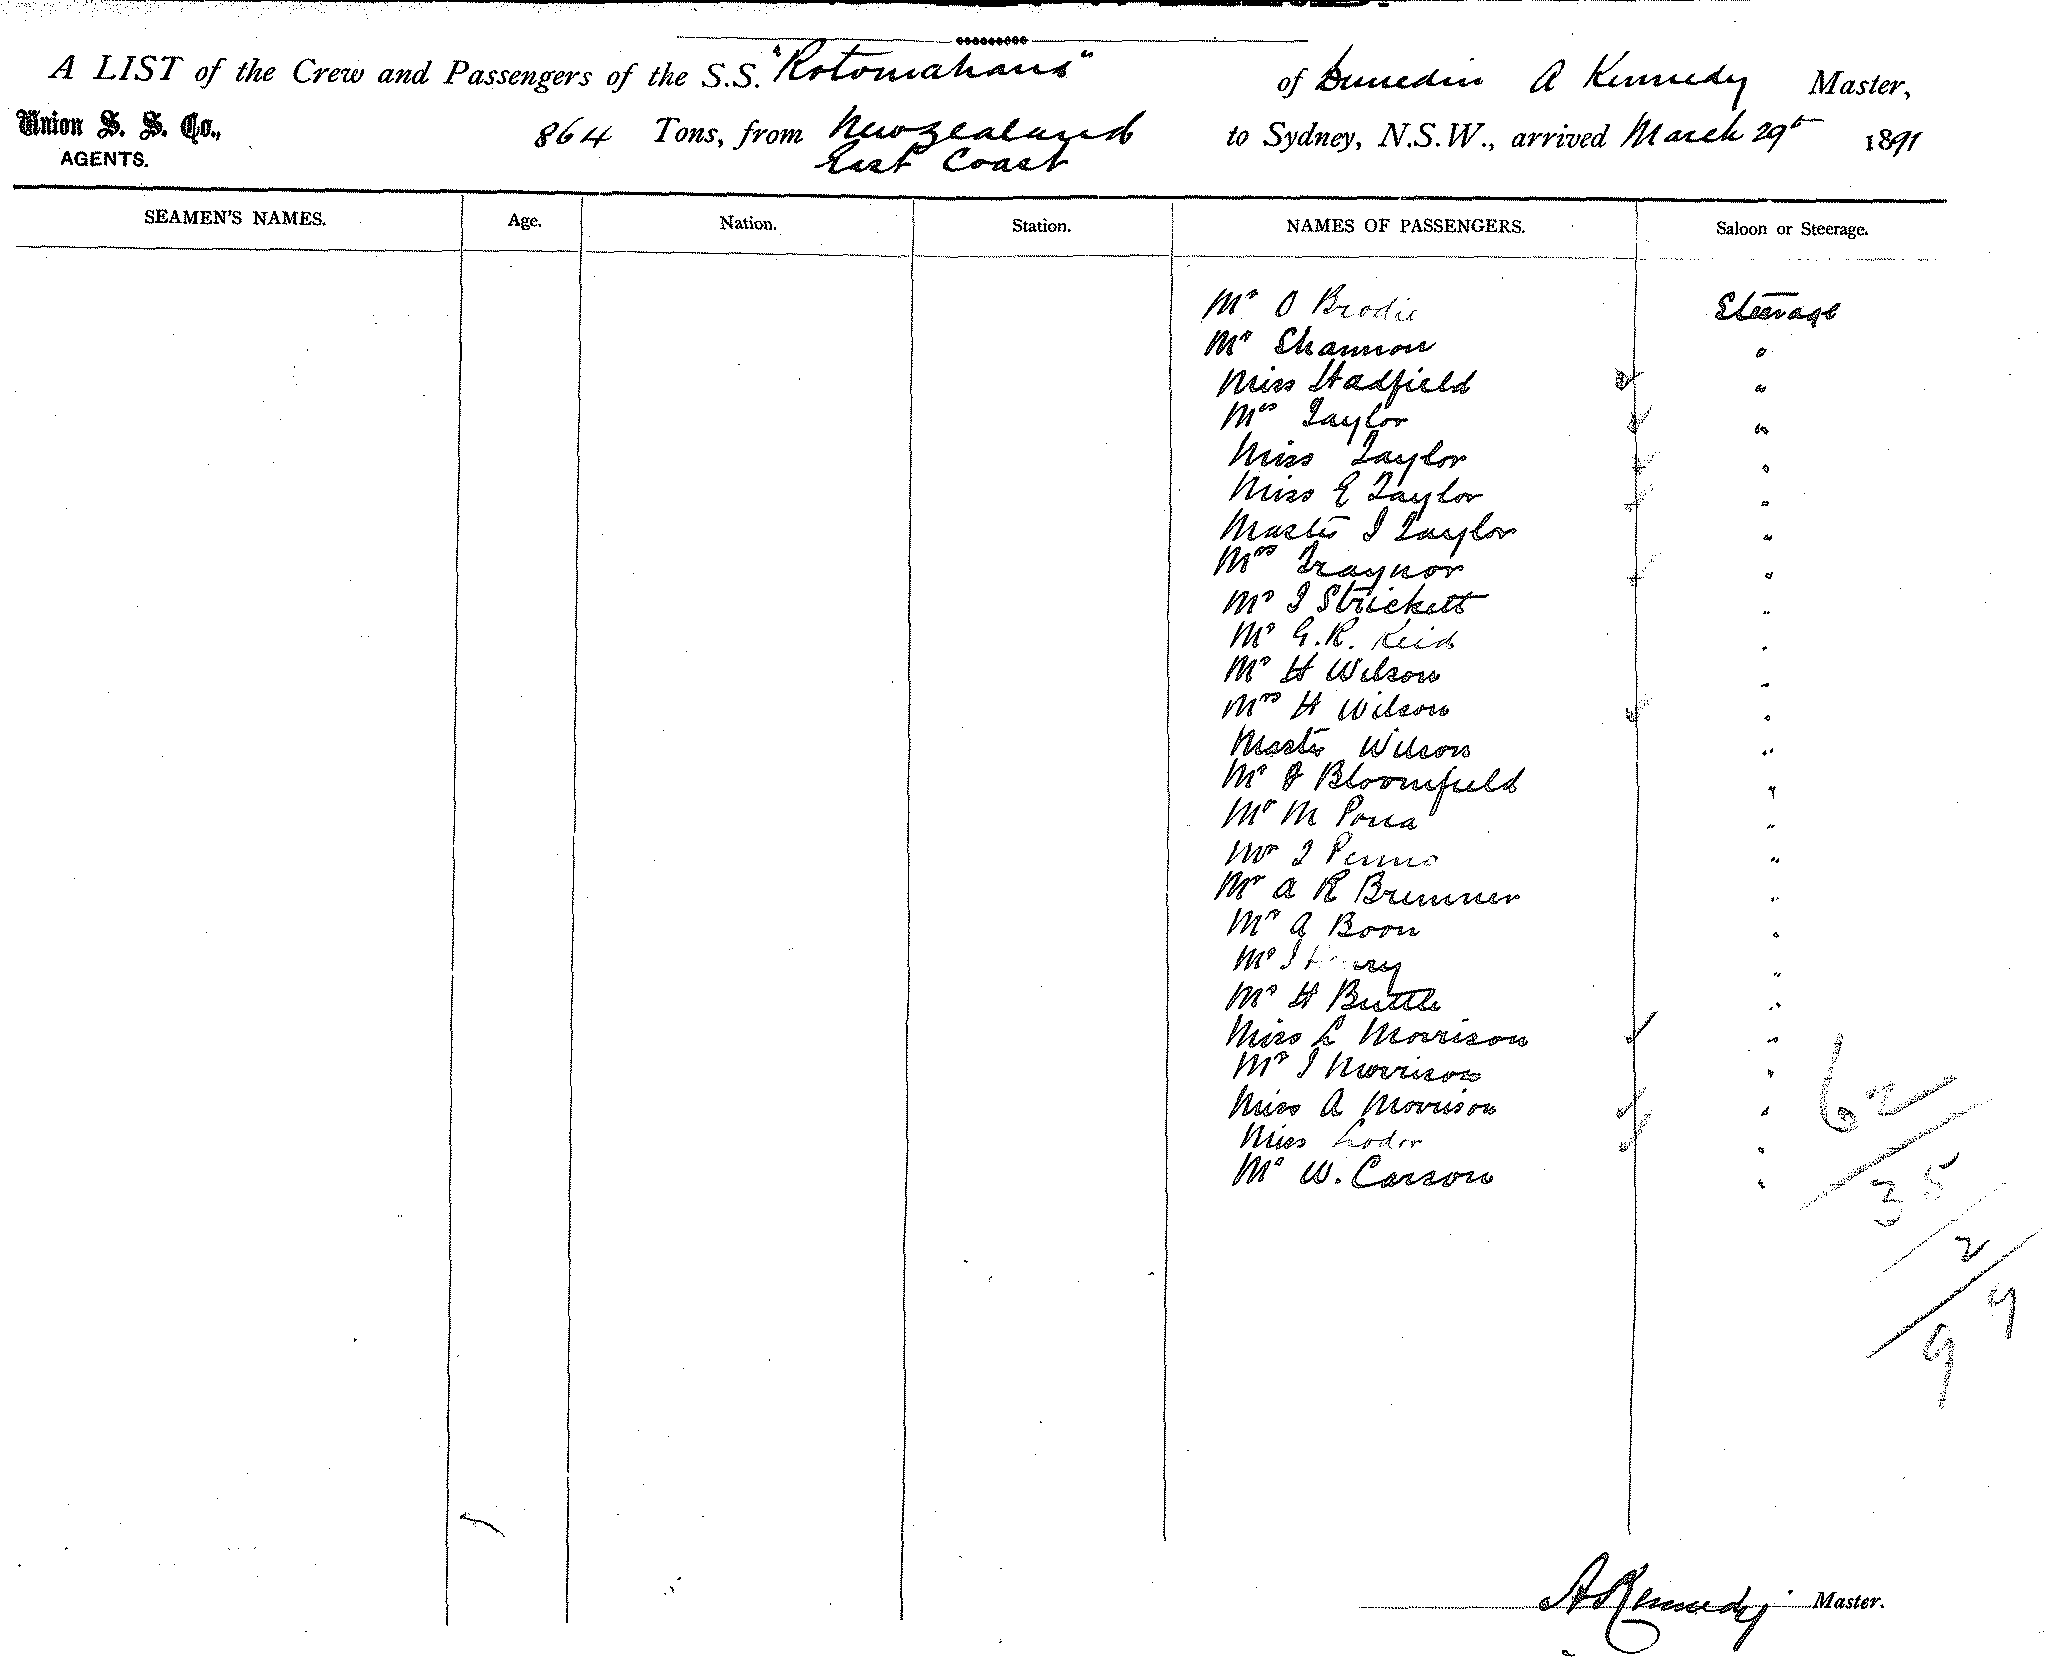 A LIST of the Crew and Passengers of the S.S. "Rotomahana" of Dunedin A Kennedy Master,
Union S. S. Co.,
AGENTS.
864 Tons, from Newzealand to Sydney, N.S.W., arrived March 29th 1891
East Coast
SEAMEN'S NAMES. Age. Nation. Station. NAMES OF PASSENGERS. Saloon or Steerage.
Mr O Brodie Steerage
Mr Shannon "
Miss Hadfield "
Mrs Taylor "
Miss Taylor "
Miss E Taylor "
Master I Taylor "
Mrs Traynor "
Mr I Strickett "
Mr G.R. Reid "
Mr H Wilson "
Mrs H Wilson "
Master Wilson "
Mr Bloomfield "
Mr M "
Mr "
Mr A R Bremner "
Mr A Boon "
Mr I Henry "
Mr H Buttle "
Miss L Morrison "
Mr I Morrison "
Miss A Morrison "
Miss "
Mr W. Carson "
62
35
2
9
9
A Kennedy Master.